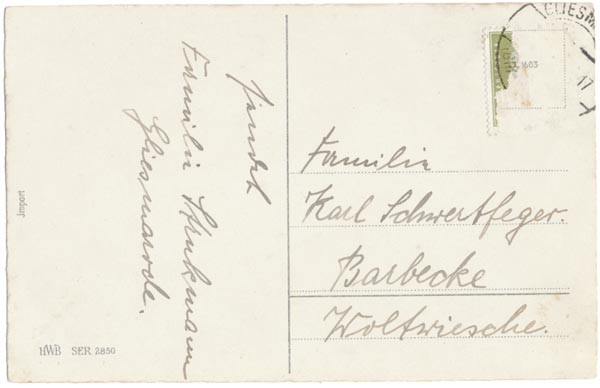 sendet
Familie Strukmann
Gliesmarode.
Import
HWB SER 2850
GLIESM
1603
17
X
Familie
Karl Schwertfeger.
Barbecke
Woltwiesche.